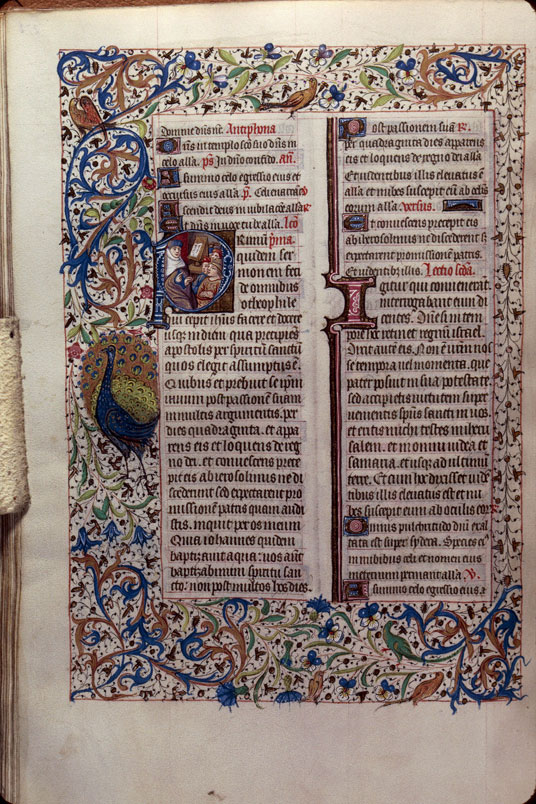 Domine dñs nr̃. Antiphona
Dñs in templo sc̃o suo dñs in
celo alla. p̃s In dño confido. añ.
A summo celo egressio eius et
occursus eius alla. p̃. Celi enarrant
Ascendit deus in iubilacõe alla
Et dñs in uoce tube alla. Lc̃o
Primũ p̃ma.
quidem ser
monem feci
de omnibus
o theophile
que cepit ihũs facere et docere
usq; in diem qua precipiens
apostolis per spiritũ sanctũ
quos elegit assumptus ẽ.
Quibus et prebuit se ip̃m
uiuum post passionẽ suam
in multis argumentis. per
dies quadraginta et appa
rens eis et loquens de reg
no dei. et conuescens prece
pit eis ab hierosolimis ne di
scederent sed expectarent pro
missionẽ patris quam audi
stis. inquit per os meum
Quia iohannes quidem
baptizauit aqua: uos aũt
baptizabimini spiritu san
cto: non post multos hos dies.
Post passionem suã R̃.
per quadraginta dies apparens
eis et loquens de regno dei alla
Et uidentibus illis eleuatus ẽ
alla et nubes suscepit eũ ab oculis
eorum alla. Versus.
Et conuescens precepit eis
ab hierosolimis ne discederent s;
expectarent promissionẽ patris.
Et uidentib; illis. Lectio sc̃da.
Igitur qui conuenerant
interrogabant eum di
centes. Dñe si in tem
pore hoc restitues regnũ israel.
Dixit autẽ eis. Non ẽ ur̃m nos
se tempora uel momenta. que
pater posuit in sua potestate
sed accipietis uirtutem super
uenientis sp̃us sancti in uos.
et eritis michi testes in iherusalem
salem. et in omni iudea et
samaria. et usq; ad ultimũ
terre. Et cum hec dixisset uiden
tibus illis eleuatus est et nu
bes suscepit eum ab oculis eorũ
Omnis pulcritudo dñi exal
tata est super sydera. Species eius
in nubibus celi et nomen eius
in eternum permanet alla. V̾.
A summo celo egressio eius. et